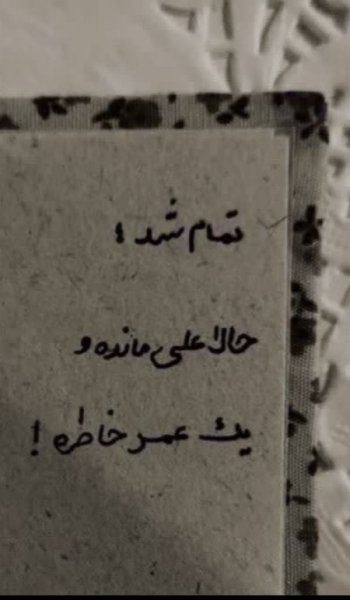 تمام شد ؛
حالا علی مانده و
یک عمر خاطره !